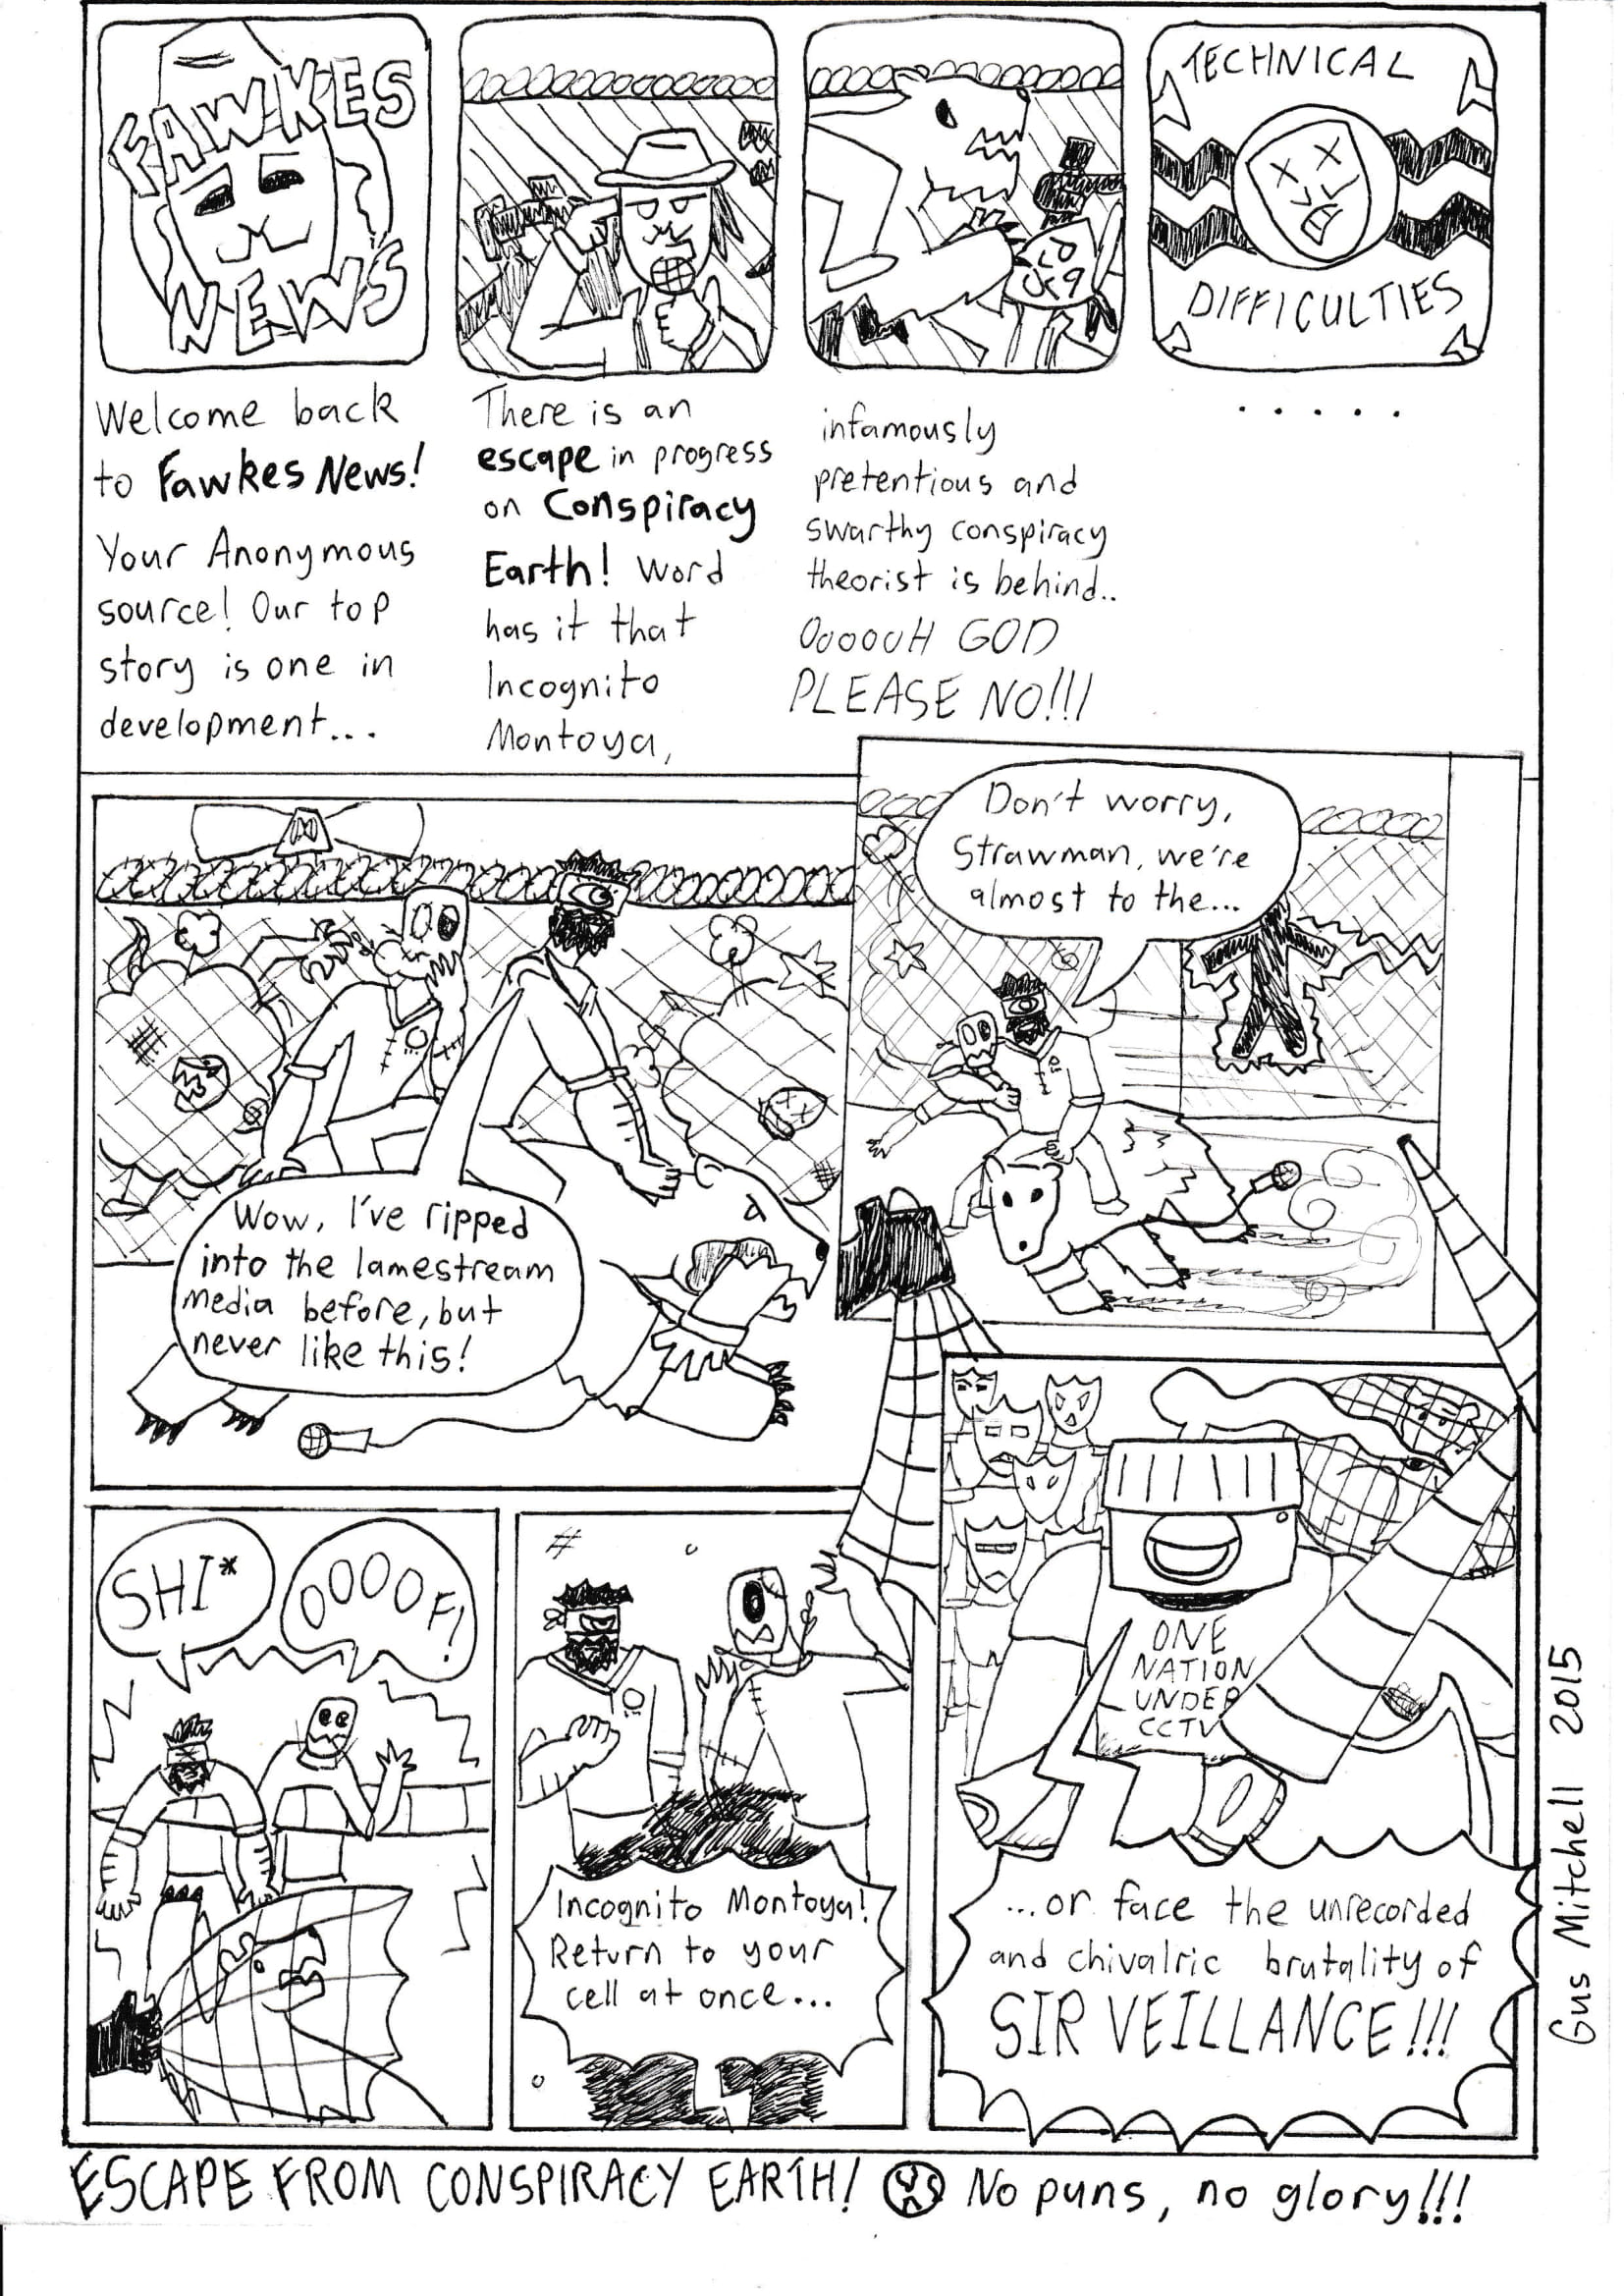 FAWKES
NEWS
TECHNICAL
DIFFICULTIES
Welcome back
to Fawkes News!
Your Anonymous
source! Our top
story is one in
development...
There is an
escape in progress
on Conspiracy
Earth! Word
has it that
Incognito
Montoya,
infamously
pretentious and
swarthy conspiracy
theorist is behind..
OooooH GOD
PLEASE NO!!!
.....
Wow, I've ripped
into the lamestream
media before, but
never like this!
Don't worry,
Strawman, we're
almost to the...
SHI*
OOOOF!
Incognito Montoya!
Return to your
cell at once...
ONE
NATION
UNDER
CCTV
...or face the unrecorded
and chivalric brutality of
SIR VEILLANCE!!!
Gus Mitchell 2015
ESCAPE FROM CONSPIRACY EARTH! No puns, no glory!!!